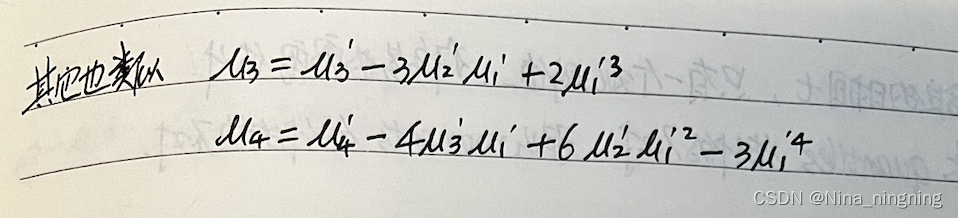 其它也类似 μ₃ = μ₃' − 3μ₂'μ₁' + 2μ₁'³
μ₄ = μ₄' − 4μ₃'μ₁' + 6μ₂'μ₁'² − 3μ₁'⁴
CSDN @Nina_ningning